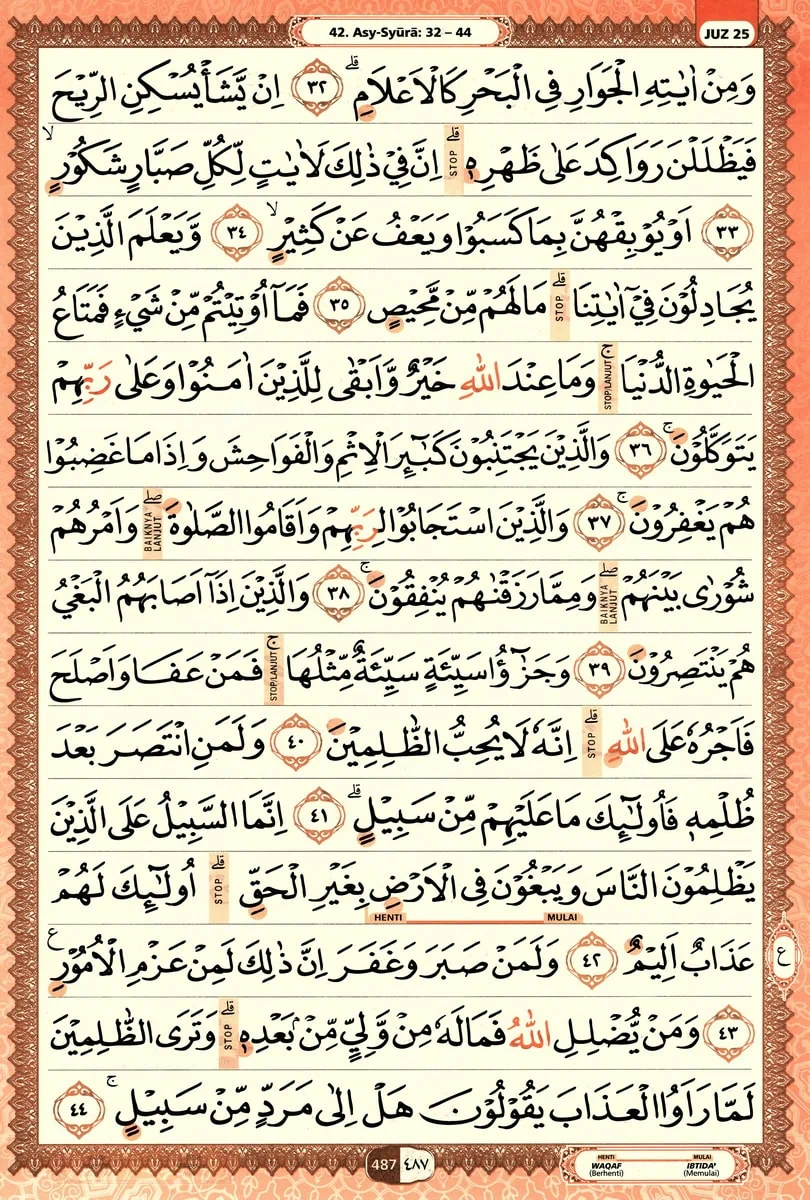 42. Asy-Syūrā: 32 – 44
JUZ 25
وَمِنْ اٰيٰتِهِ الْجَوَارِ فِى الْبَحْرِ كَالْاَعْلَامِ ۗ ٣٢ اِنْ يَّشَأْ يُسْكِنِ الرِّيْحَ
فَيَظْلَلْنَ رَوَاكِدَ عَلٰى ظَهْرِهٖ ۗ STOP اِنَّ فِيْ ذٰلِكَ لَاٰيٰتٍ لِّكُلِّ صَبَّارٍ شَكُوْرٍ ۙ
٣٣ اَوْ يُوْبِقْهُنَّ بِمَا كَسَبُوْا وَيَعْفُ عَنْ كَثِيْرٍ ۙ ٣٤ وَّيَعْلَمَ الَّذِيْنَ
يُجَادِلُوْنَ فِيْٓ اٰيٰتِنَا ۗ STOP مَا لَهُمْ مِّنْ مَّحِيْصٍ ٣٥ فَمَآ اُوْتِيْتُمْ مِّنْ شَيْءٍ فَمَتَاعُ
الْحَيٰوةِ الدُّنْيَا ۚ STOP/LANJUT وَمَا عِنْدَ اللّٰهِ خَيْرٌ وَّاَبْقٰى لِلَّذِيْنَ اٰمَنُوْا وَعَلٰى رَبِّهِمْ
يَتَوَكَّلُوْنَ ۚ ٣٦ وَالَّذِيْنَ يَجْتَنِبُوْنَ كَبٰۤىِٕرَ الْاِثْمِ وَالْفَوَاحِشَ وَاِذَا مَا غَضِبُوْا
هُمْ يَغْفِرُوْنَ ۚ ٣٧ وَالَّذِيْنَ اسْتَجَابُوْا لِرَبِّهِمْ وَاَقَامُوا الصَّلٰوةَ ۖ BAIKNYA LANJUT وَاَمْرُهُمْ
شُوْرٰى بَيْنَهُمْ ۖ BAIKNYA LANJUT وَمِمَّا رَزَقْنٰهُمْ يُنْفِقُوْنَ ۚ ٣٨ وَالَّذِيْنَ اِذَآ اَصَابَهُمُ الْبَغْيُ
هُمْ يَنْتَصِرُوْنَ ٣٩ وَجَزٰۤؤُا سَيِّئَةٍ سَيِّئَةٌ مِّثْلُهَا ۚ STOP/LANJUT فَمَنْ عَفَا وَاَصْلَحَ
فَاَجْرُهٗ عَلَى اللّٰهِ ۗ STOP اِنَّهٗ لَا يُحِبُّ الظّٰلِمِيْنَ ٤٠ وَلَمَنِ انْتَصَرَ بَعْدَ
ظُلْمِهٖ فَاُولٰۤىِٕكَ مَا عَلَيْهِمْ مِّنْ سَبِيْلٍ ۗ ٤١ اِنَّمَا السَّبِيْلُ عَلَى الَّذِيْنَ
يَظْلِمُوْنَ النَّاسَ وَيَبْغُوْنَ فِى الْاَرْضِ بِغَيْرِ الْحَقِّ ۗ STOP اُولٰۤىِٕكَ لَهُمْ
HENTI MULAI
عَذَابٌ اَلِيْمٌ ٤٢ وَلَمَنْ صَبَرَ وَغَفَرَ اِنَّ ذٰلِكَ لَمِنْ عَزْمِ الْاُمُوْرِ ع
ع
٤٣ وَمَنْ يُّضْلِلِ اللّٰهُ فَمَا لَهٗ مِنْ وَّلِيٍّ مِّنْۢ بَعْدِهٖ ۗ STOP وَتَرَى الظّٰلِمِيْنَ
لَمَّا رَاَوُا الْعَذَابَ يَقُوْلُوْنَ هَلْ اِلٰى مَرَدٍّ مِّنْ سَبِيْلٍ ۚ ٤٤
487 ٤٨٧
HENTI MULAI
WAQAF IBTIDA'
(Berhenti) (Memulai)